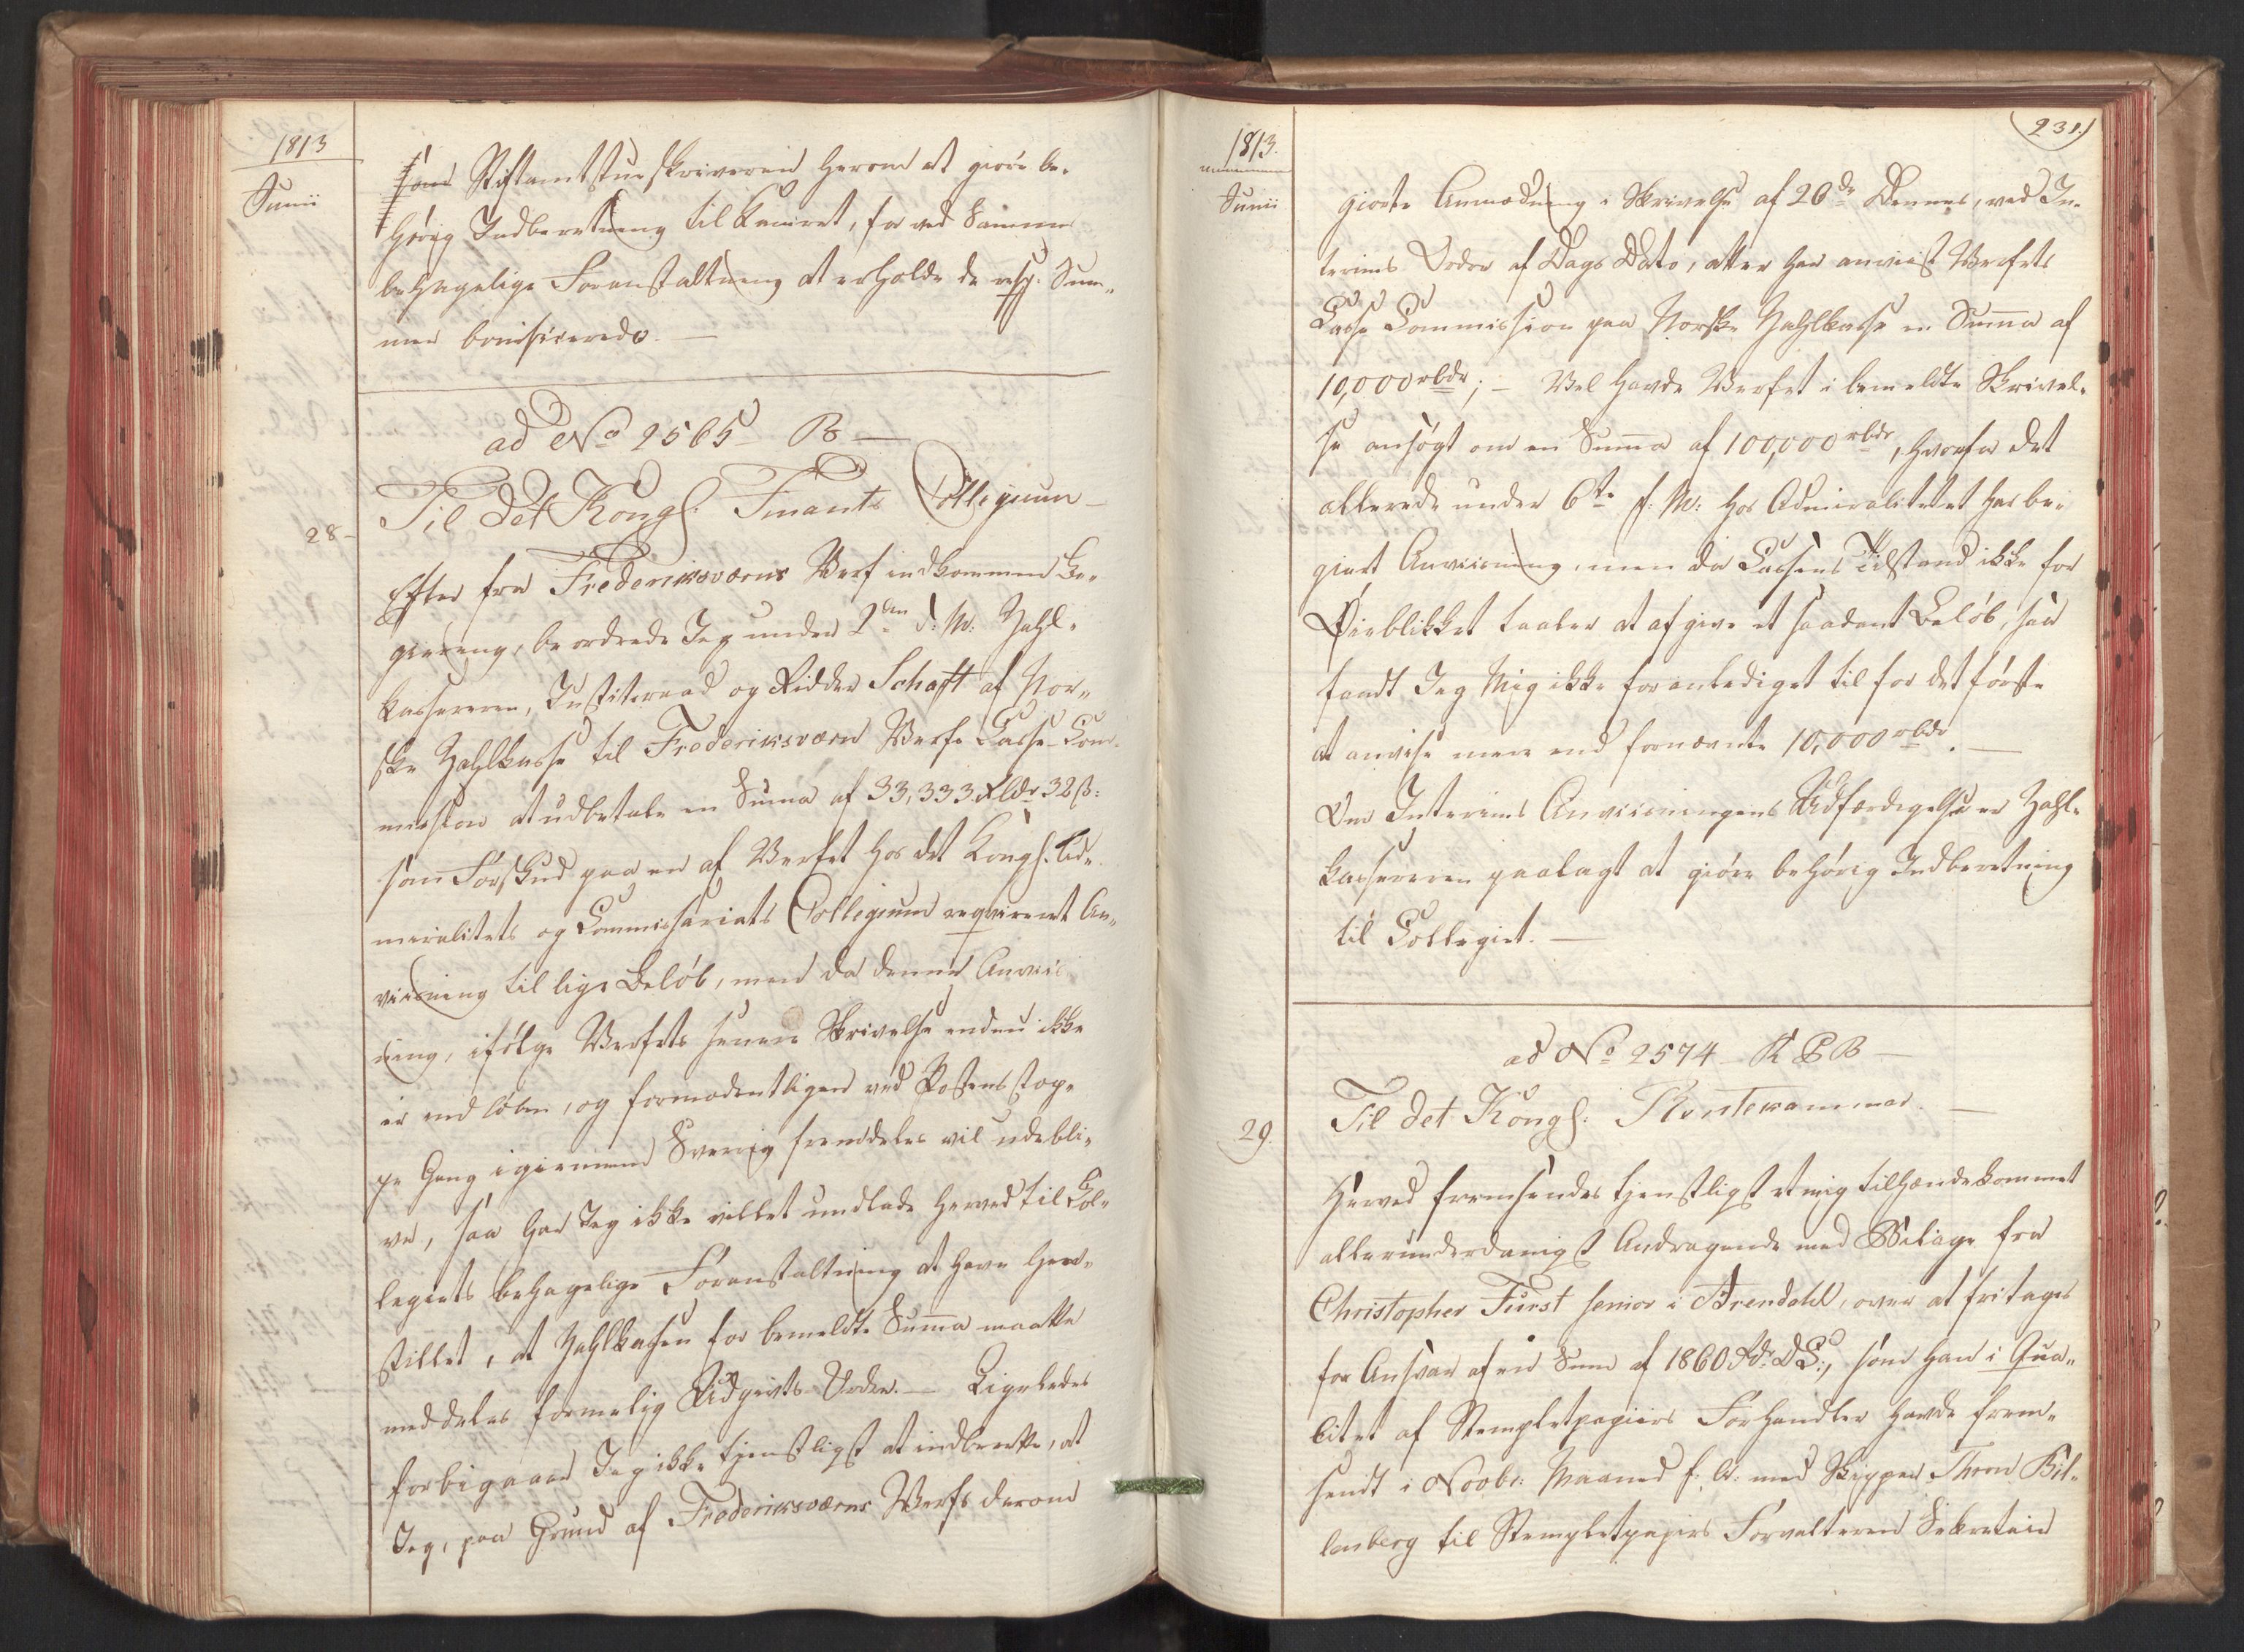 1813
Junii
som Stiftamtstueskriveren herom at giöre be-
hörig Indberetning til Kamret, for ved Samme
behagelige Foranstaltning at erholde de resp: Sum-
mer bonificerede. —
ad No 2565 B —
Til det Kongl. Finants Collegium —
28 -
Efter fra Frederiksværns Verf indkommen Be-
giering, beordrede Jeg under 2den d: M: Zahl-
kassereren, Justitsraad og Ridder Schafft af Nor-
ske Zahlkasse til Frederiksværn Verfs Casse-Com-
mission at udbetale en Suma af 33,333 Rbdr 32 s:
som Forskud paa en af Verfet hos det Kongl. Ad-
miralitets og Commissariats Collegium reqvireret An-
viisning til lige Belöb, men da denne Anviis-
ning, ifölge Verfets senere Skrivelse endnu ikke
er indlöben, og formodentligen ved Postens stop-
pe Gang igiennem Sverrig fremdeles vil udebli-
ve, saa har Jeg ikke villet undlade herved til Col-
legiets behagelige Foranstaltning at have hen-
stillet, at Zahlkassen for bemeldte Suma maatte
meddeles formelig Udgivts-Ordre. — Ligeledes
forbigaaer Jeg ikke tjenstligst at indberette, at
Jeg, paa Grund af Frederiksværns Verfs derom
1813.
Junii
231.)
giorte Anmodning i Skrivelse af 26de Dennes, ved In-
terims Ordre af Dags Dato, atter har anviist Verfets
Casse Commission paa Norske Zahlkasse en Suma af
10,000 rbdr; — Vel havde Verfet i bemeldte Skrivel-
se ansögt om en Suma af 100,000 rbdr, hvorfor det
allerede under 6te f: M: hos Admiralitetet har be-
giert Anviisning, men da Cassens Tilstand ikke for
Öieblikket taaler at afgive et saadant Belöb, saa
fandt Jeg Mig ikke foranlediget til for det förste
at anvise mere end fornævnte 10,000 rbdr. —
Om Interims Anviisningens Udfærdigelse er Zahl-
kassereren paalagt at giöre behörig Indberetning
til Collegiet. —
ad No 2574 - K P B —
Til det Kongl: Rentekammer. —
29.
Herved fremsendes tjenstligst et mig tilhændekommet
allerunderdanigst Andragende med Bilage fra
Christopher Furst senior i Arendahl, over at fritages
for Ansvar af en Sum af 1860 Rd. D.C., som han i Qua-
litet af Stempletpapiirs Forhandler havde frem-
sendt i Novbr: Maaned f: A: med Skipper Thron Bil-
lenberg til Stempletpapirs Forvalteren Sekretair